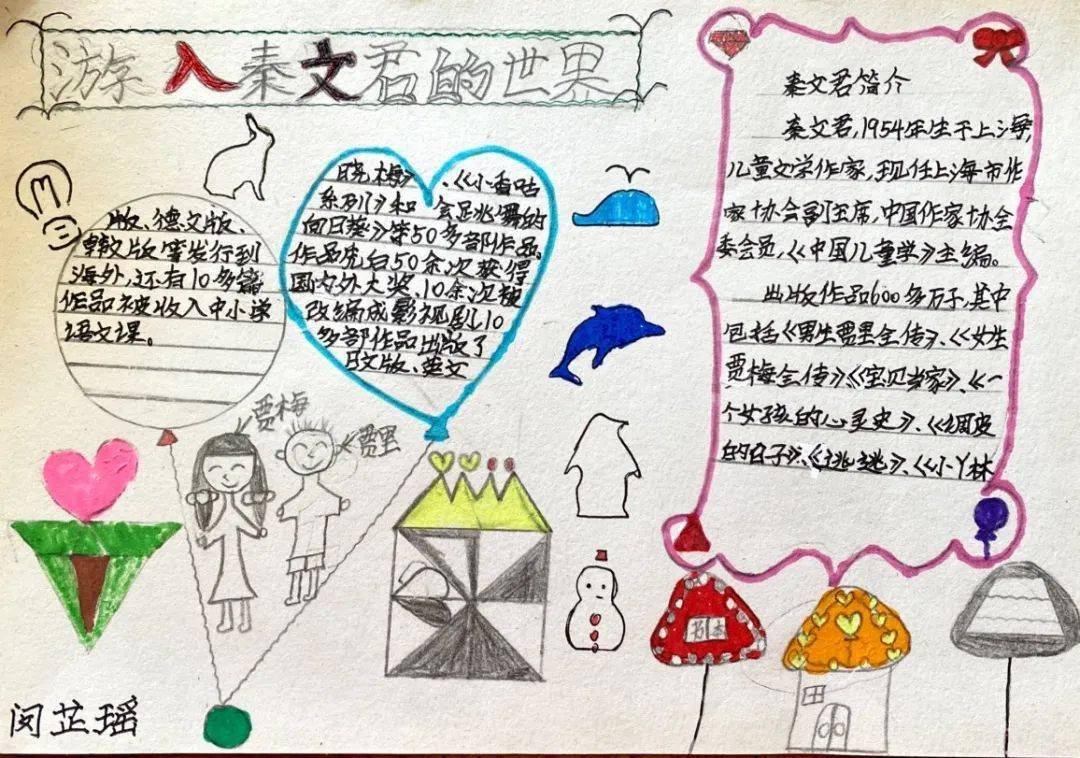 游 入秦文君的世界
秦文君简介
秦文君,1954年生于上海,
儿童文学作家,现任上海市作
家协会副主席,中国作家协全
委会员,《中国儿童学》主编。
出版作品600多万子,其中
包括《男生贾里全传》、《女生
贾梅全传》《宝贝当家》、《一
个女孩的心灵史》、《调皮
的日子》、《逃逃》、《小丫林
晓梅》、《小香咕
系列》和《会跳舞的
向日葵》等50多部作品。
作品先后50余次获得
国内外大奖,10余次被
改编成影视剧,10
多部作品出版了
日文版、英文
版、德文版、
韩教版等发行到
海外,还有10多篇
作品被收入中小学
语文课。
贾梅
贾里
闵芷瑶